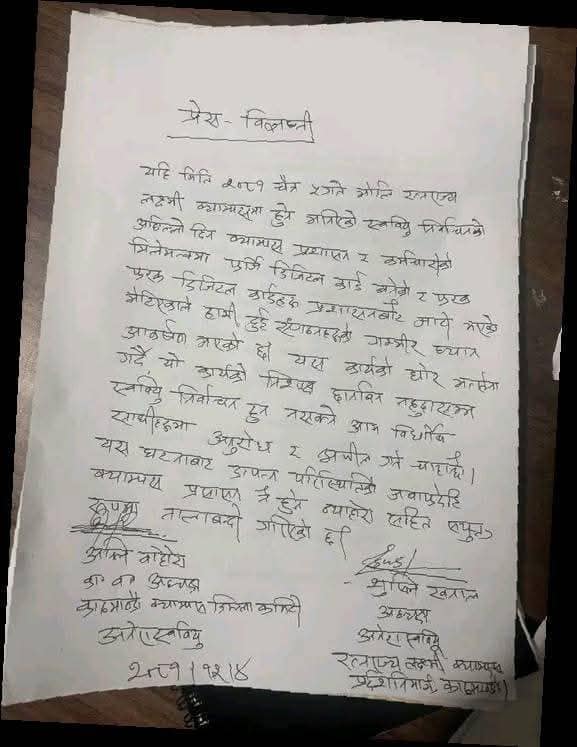 प्रेस - विज्ञप्ती
यहि मिति २०८१ चैत्र ५ गते भोलि रत्नराज्य
लक्ष्मी क्याम्पसमा हुने भनिएको स्ववियु निर्वाचनको
अघिल्लो दिन क्याम्पस प्रशासन र कर्मचारीको
मिलेमत्वमा फर्जि डिजिटल कार्ड बनेको र फरक
फरक डिजिटल कार्डहरु प्रशासनबाट जारी भएको
भेटिएकाले हामी दुई संगठनहरुको गम्भीर ध्यान
आकर्षण भएको छ। यस कार्यको घोर भर्त्सना
गर्दै, यो कार्यको निष्पक्ष छानविन नहुदासम्म
स्ववियु निर्वाचन हुन नसक्ने आम विद्यार्थी
साथीहरुमा अनुरोध र अपील गर्न चाहन्छौं।
यस घटनाबाट उत्पन्न परिस्थितिको जवाफदेहि
क्याम्पस प्रशासन नै हुने व्यहोरा सहित
तालाबन्दी गरिएको छ।
अनिल वोहोरा
का. वा. अध्यक्ष
काठमाण्डौ क्याम्पस जिल्ला कमिटी
अनेरास्ववियु
२०८१।१२।४
अध्यक्ष
अनेरास्ववियु
रत्नराज्य लक्ष्मी क्याम्पस
प्रदर्शनीमार्ग, काठमाण्डौ।